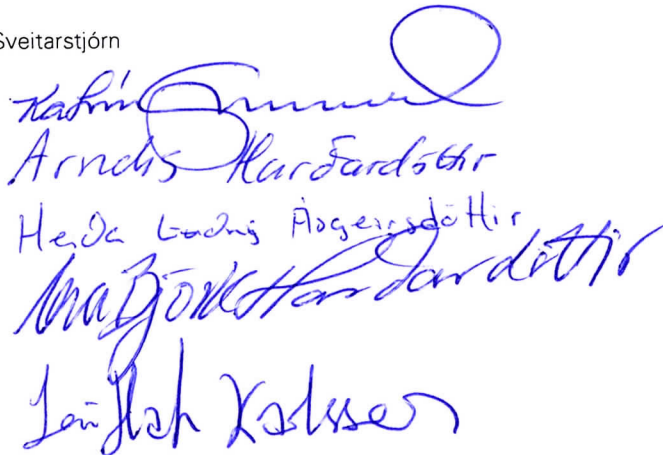 Sveitarstjórn
Katrín
Arndís Harðardóttir
Heiða Ásgeirsdóttir
Björk Harðardóttir
Jón Karlsson